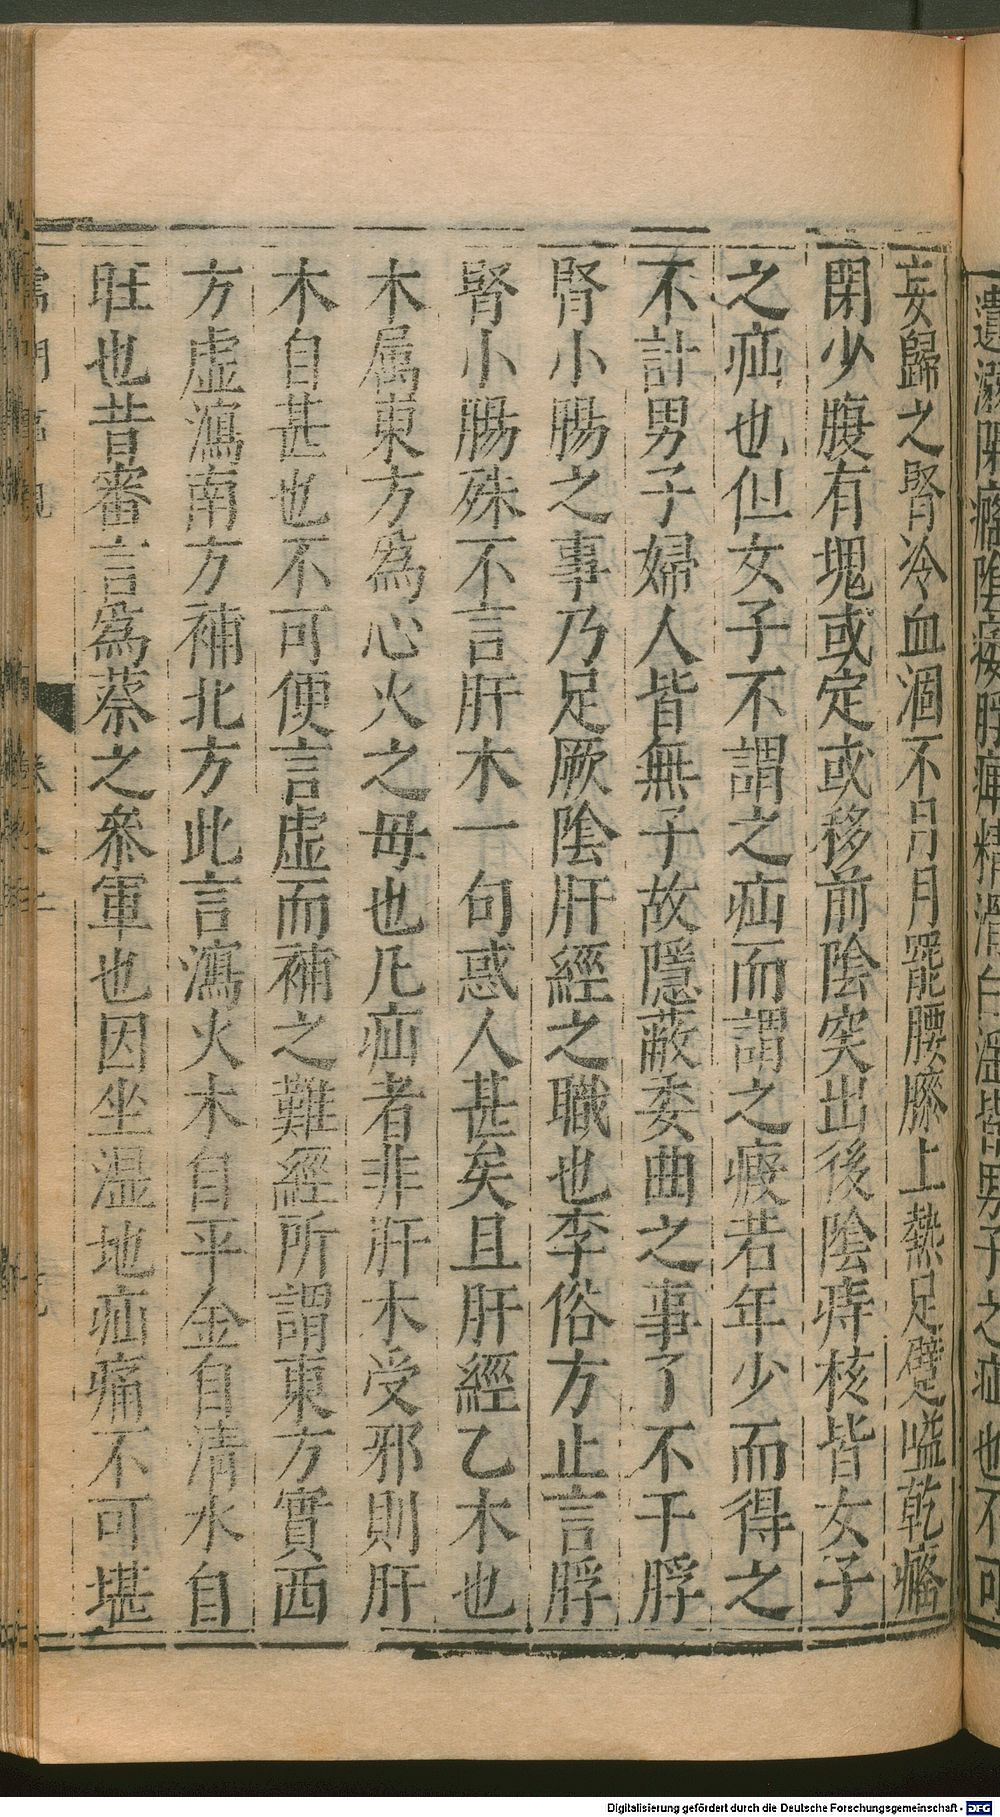 遺溺閉癃陰痿脬痺精滑白淫皆男子之疝也不可
妄歸之腎冷血涸不月月罷腰膝上熱足躄嗌乾癃
閉少腹有塊或定或移前陰突出後陰痔核皆女子
之疝也但女子不謂之疝而謂之瘕若年少而得之
不計男子婦人皆無子故隱蔽委曲之事了不干脬
腎小腸之事乃足厥陰肝經之職也李俗方止言脬
腎小腸殊不言肝木一句惑人甚矣且肝經乙木也
木属東方為心火之母也凡疝者非肝木受邪則肝
木自甚也不可便言虚而補之難經所謂東方實西
方虚瀉南方補北方此言瀉火木自平金自清水自
旺也昔審言為蔡之叅軍也因坐湿地疝痛不可堪
Digitalisierung gefördert durch die Deutsche Forschungsgemeinschaft - DFG